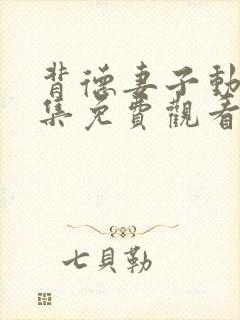 背德妻子動
集免費觀看
七貝勒